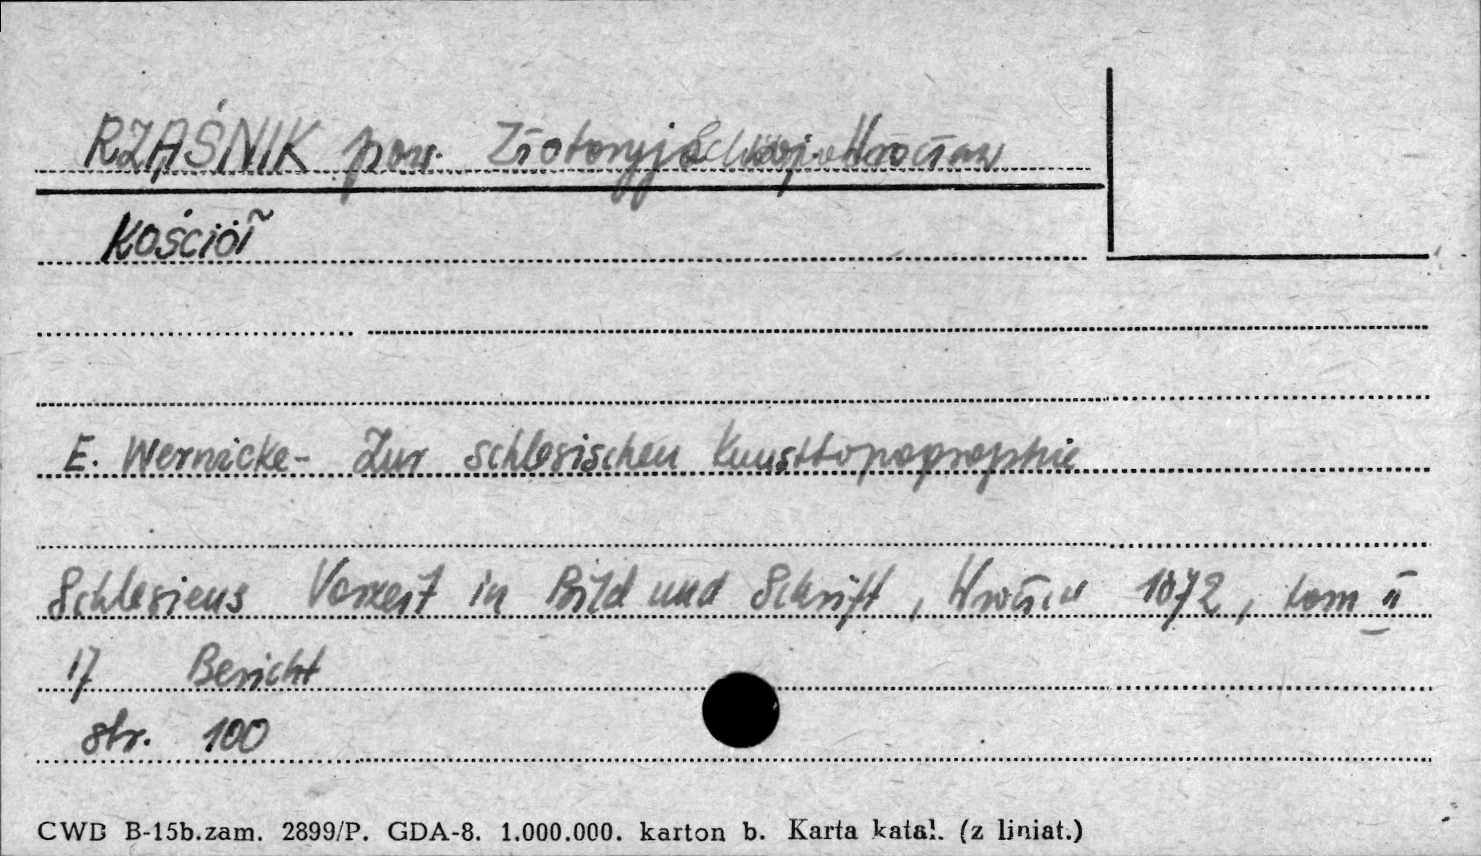 RZĄŚNIK pow. Złotoryja woj. Wrocław
Kościół
E. Wernicke - Zur schlesischen Kunsttopographie
Schlesiens Vorzeit in Bild und Schrift, Wrocław 1872, tom II
17 Bericht
str. 100
CWD B-15b.zam. 2899/P. GDA-8. 1.000.000. karton b. Karta katal. (z liniat.)